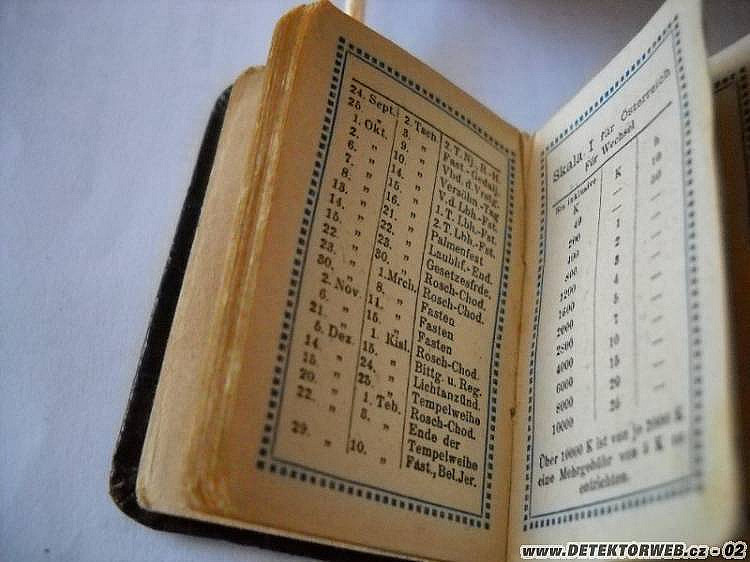 24. Sept. 2. Tsch. 2. T. Nj. R.-H.
25. „ 3. „ Fast.-Gedalj.
1. Okt. 9. „ Vbd. d. Vrsög.
2. „ 10. „ Versöhn.-Tag
6. „ 14. „ V. d. Lbh.-Fst.
7. „ 15. „ 1. T. Lbh.-Fst.
8. „ 16. „ 2. T. Lbh.-Fst.
13. „ 21. „ Palmenfest
14. „ 22. „ Laubhf.-End.
15. „ 23. „ Gesetzesfrde.
22. „ 30. „ Rosch-Chod.
23. „ 1. Mrch. Rosch-Chod.
30. „ 8. „ Fasten
2. Nov. 11. „ Fasten
6. „ 15. „ Fasten
21. „ 1. Kisl. Rosch-Chod.
5. Dez. 15. „ Bittg. u. Reg.
14. „ 24. „ Lichtanzünd.
15. „ 25. „ Tempelweihe
20. „ 1. Teb. Rosch-Chod.
22. „ 3. „ Ende der
Tempelweihe
29. „ 10. „ Fast., Bel. Jer.
Skala I für Österreich
Für Wechsel
Bis inklusive K h
K
40 — 10
200 1 —
400 2 —
800 3 —
1200 4 —
1600 5 —
2000 7 —
2800 10 —
4000 15 —
6000 20 —
8000 25 —
10000
Über 10000 K ist von je 2000 K
eine Mehrgebühr von 5 K zu
entrichten.
www.DETEKTORWEB.cz - 02